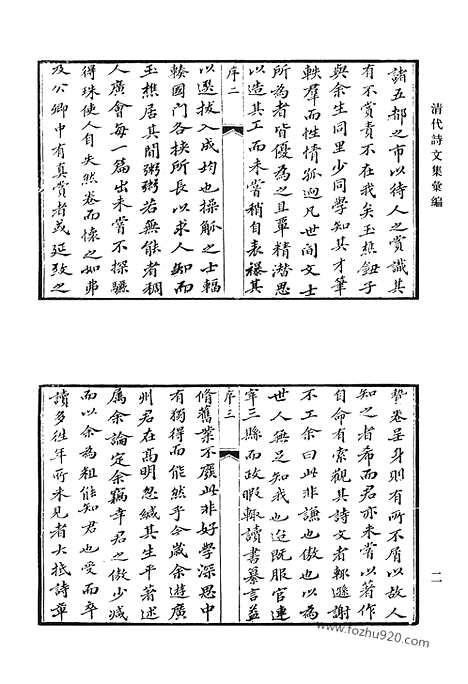 清代詩文集彙編
諸五都之市以待人之賞識其
有不賞責不在我矣玉樵鈕子
與余生同里少同學知其才筆
軼羣而性情孤迥凡世間文士
所為者皆優為之且覃精潛思
以造其工而未嘗稍自表襮其
序二
以選拔入成均也操觚之士輻
輳國門各挾所長以求人知而
玉樵居其間粥粥若無能者稠
人廣會每一篇出未嘗不探驪
得珠使人自失然卷而懷之如弗
及公卿中有真賞者或延致之
摯卷呈身則有所不屑以故人
知之者希而君亦未嘗以著作
自命有索觀其詩文者輒遜謝
不工余曰此非謙也傲也以為
世人無足知我也迨既服官連
宰三縣而政暇輒讀書纂言益
序三
脩舊業不廢此非好學深思中
有獨得而能然乎今歲余遊廣
州君在高明忽緘其生平著述
屬余論定余竊幸君之傲少減
而以余為粗能知君也受而卒
讀多往年所未見者大抵詩章
二
www.fozhu920.com